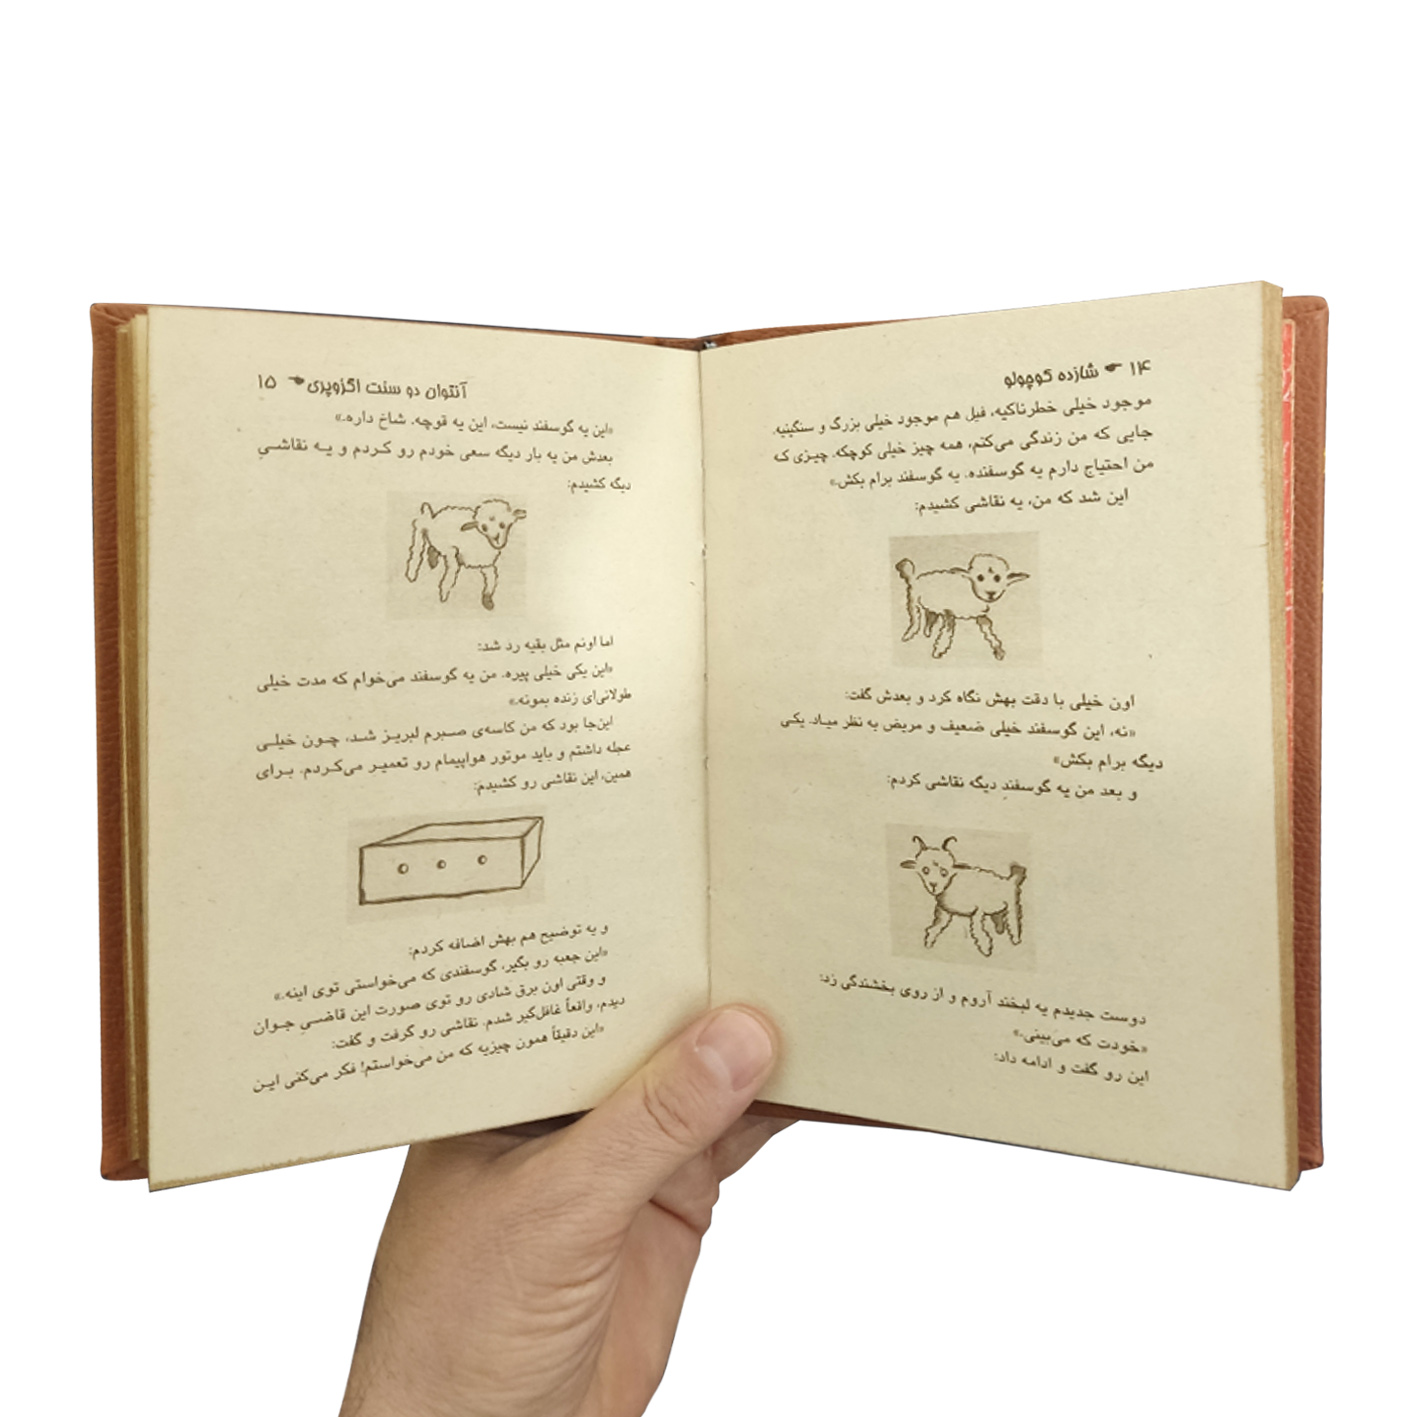 ۱۴ شازده کوچولو
موجود خیلی خطرناکیه، فیل هم موجود خیلی بزرگ و سنگینیه.
جایی که من زندگی می‌کنم، همه چیز خیلی کوچکه. چیزی که
من احتیاج دارم یه گوسفنده. یه گوسفند برام بکش.»
این شد که من، یه نقاشی کشیدم:
اون خیلی با دقت بهش نگاه کرد و بعدش گفت:
«نه، این گوسفند خیلی ضعیف و مریض به نظر میاد. یکی
دیگه برام بکش»
و بعد من یه گوسفندِ دیگه نقاشی کردم:
دوست جدیدم یه لبخند آروم و از روی بخشندگی زد:
«خودت که می‌بینی.»
این رو گفت و ادامه داد:
آنتوان دو سنت اگزوپری ۱۵
«این یه گوسفند نیست، این یه قوچه. شاخ داره.»
بعدش من یه بار دیگه سعی خودم رو کردم و یه نقاشیِ
دیگه کشیدم:
اما اونم مثل بقیه رد شد:
«این یکی خیلی پیره. من یه گوسفند می‌خوام که مدت خیلی
طولانی‌ای زنده بمونه.»
این‌جا بود که من کاسه‌ی صبرم لبریز شد، چون خیلی
عجله داشتم و باید موتور هواپیمام رو تعمیر می‌کردم. برای
همین، این نقاشی رو کشیدم:
و یه توضیح هم بهش اضافه کردم:
«این جعبه رو بگیر، گوسفندی که می‌خواستی توی اینه.»
و وقتی اون برق شادی رو توی صورت این قاضیِ جوان
دیدم، واقعاً غافل‌گیر شدم. نقاشی رو گرفت و گفت:
«این دقیقاً همون چیزیه که من می‌خواستم! فکر می‌کنی این